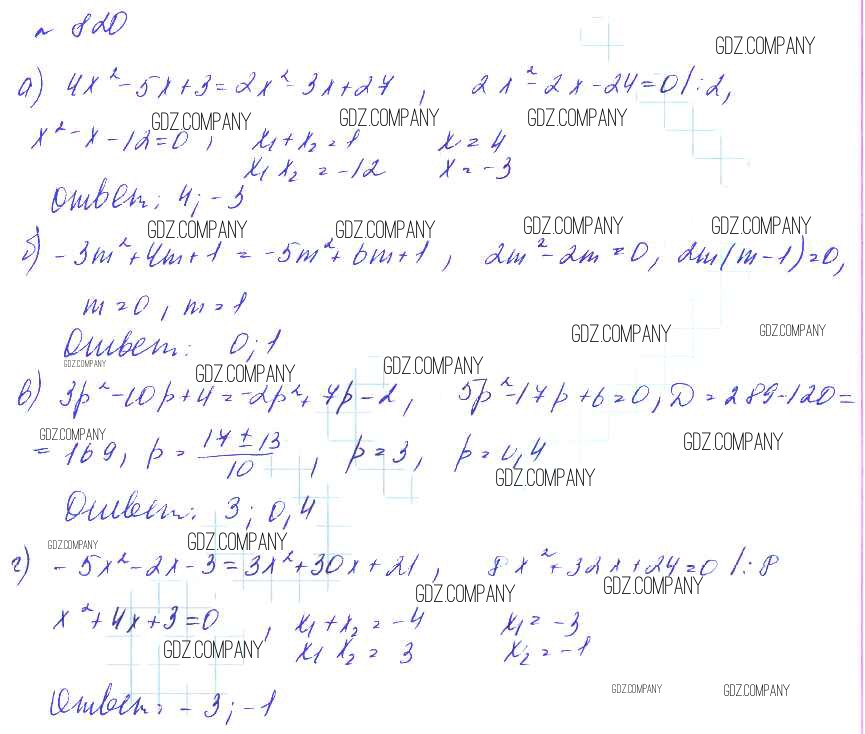 № 820
GDZ.COMPANY
а) 4x² - 5x + 3 = 2x² - 3x + 27, 2x² - 2x - 24 = 0 /: 2,
GDZ.COMPANY GDZ.COMPANY GDZ.COMPANY
x² - x - 12 = 0, x₁ + x₂ = 1 x = 4
x₁ x₂ = -12 x = -3
Ответ: 4; -3
GDZ.COMPANY GDZ.COMPANY GDZ.COMPANY GDZ.COMPANY
б) -3m² + 4m + 1 = -5m² + 6m + 1, 2m² - 2m = 0, 2m(m - 1) = 0,
m = 0, m = 1
GDZ.COMPANY GDZ.COMPANY
Ответ: 0; 1
GDZ.COMPANY GDZ.COMPANY GDZ.COMPANY
в) 3p² - 10p + 4 = -2p² + 7p - 2, 5p² - 17p + 6 = 0, D = 289 - 120 =
GDZ.COMPANY GDZ.COMPANY
= 169, p = (17 ± 13)/10, p = 3, p = 0,4
GDZ.COMPANY
Ответ: 3; 0,4
GDZ.COMPANY GDZ.COMPANY
г) -5x² - 2x - 3 = 3x² + 30x + 21, 8x² + 32x + 24 = 0 /: 8
GDZ.COMPANY GDZ.COMPANY
x² + 4x + 3 = 0, x₁ + x₂ = -4 x₁ = -3
GDZ.COMPANY x₁ x₂ = 3 x₂ = -1
GDZ.COMPANY GDZ.COMPANY
Ответ: -3; -1